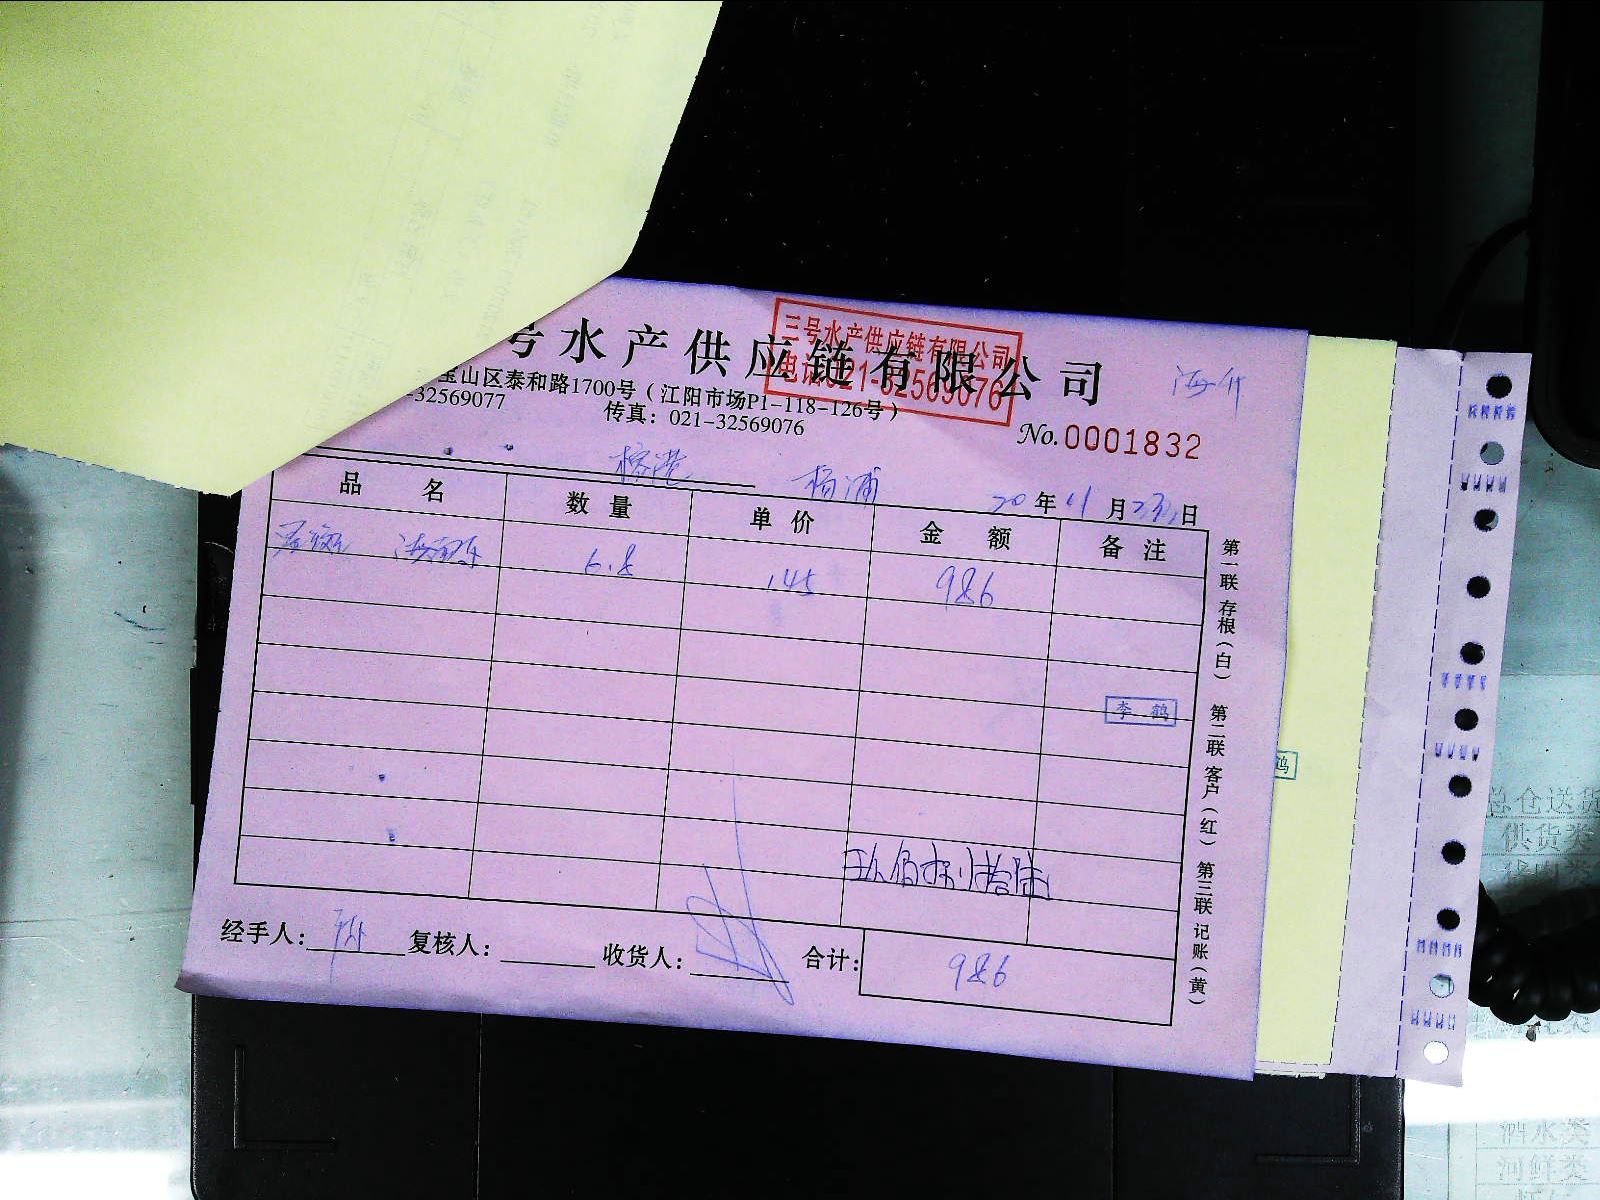 号水产供应链有限公司
三号水产供应链有限公司
电话:021-32569076
宝山区泰和路1700号（江阳市场P1-118-126号）
-32569077 传真：021-32569076
No.0001832
榕港 杨浦 20年11月23日
品名 数量 单价 金额 备注
6.8 145 986
李鹤
鹤
玖佰捌拾陆
经手人： 复核人： 收货人： 合计： 986
第一联 存根（白） 第二联 客户（红） 第三联 记账（黄）
总仓送货
供货类
河鲜类